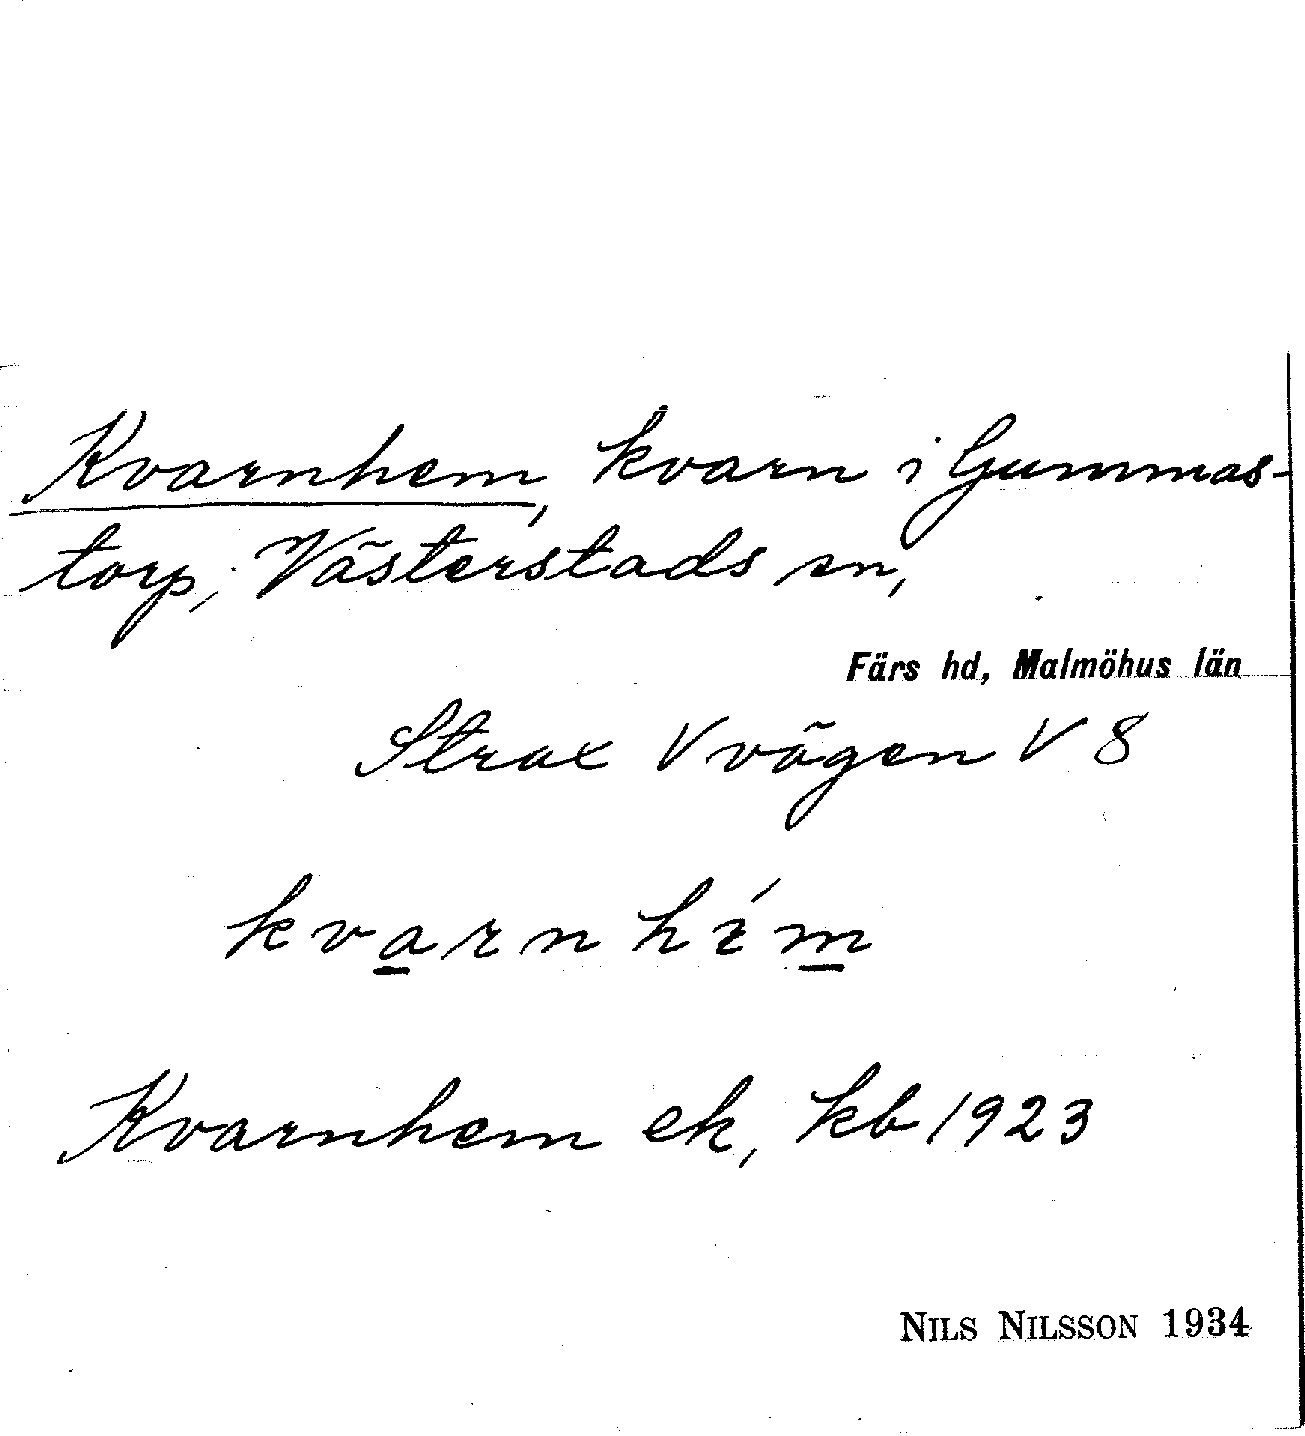 Kvarnhem, kvarn i Gummas-
torp, Västerstads sn,
Färs hd, Malmöhus län
Strax V vägen V 8
kva̲rnhém̲
Kvarnhem ek, kb 1923
NILS NILSSON 1934